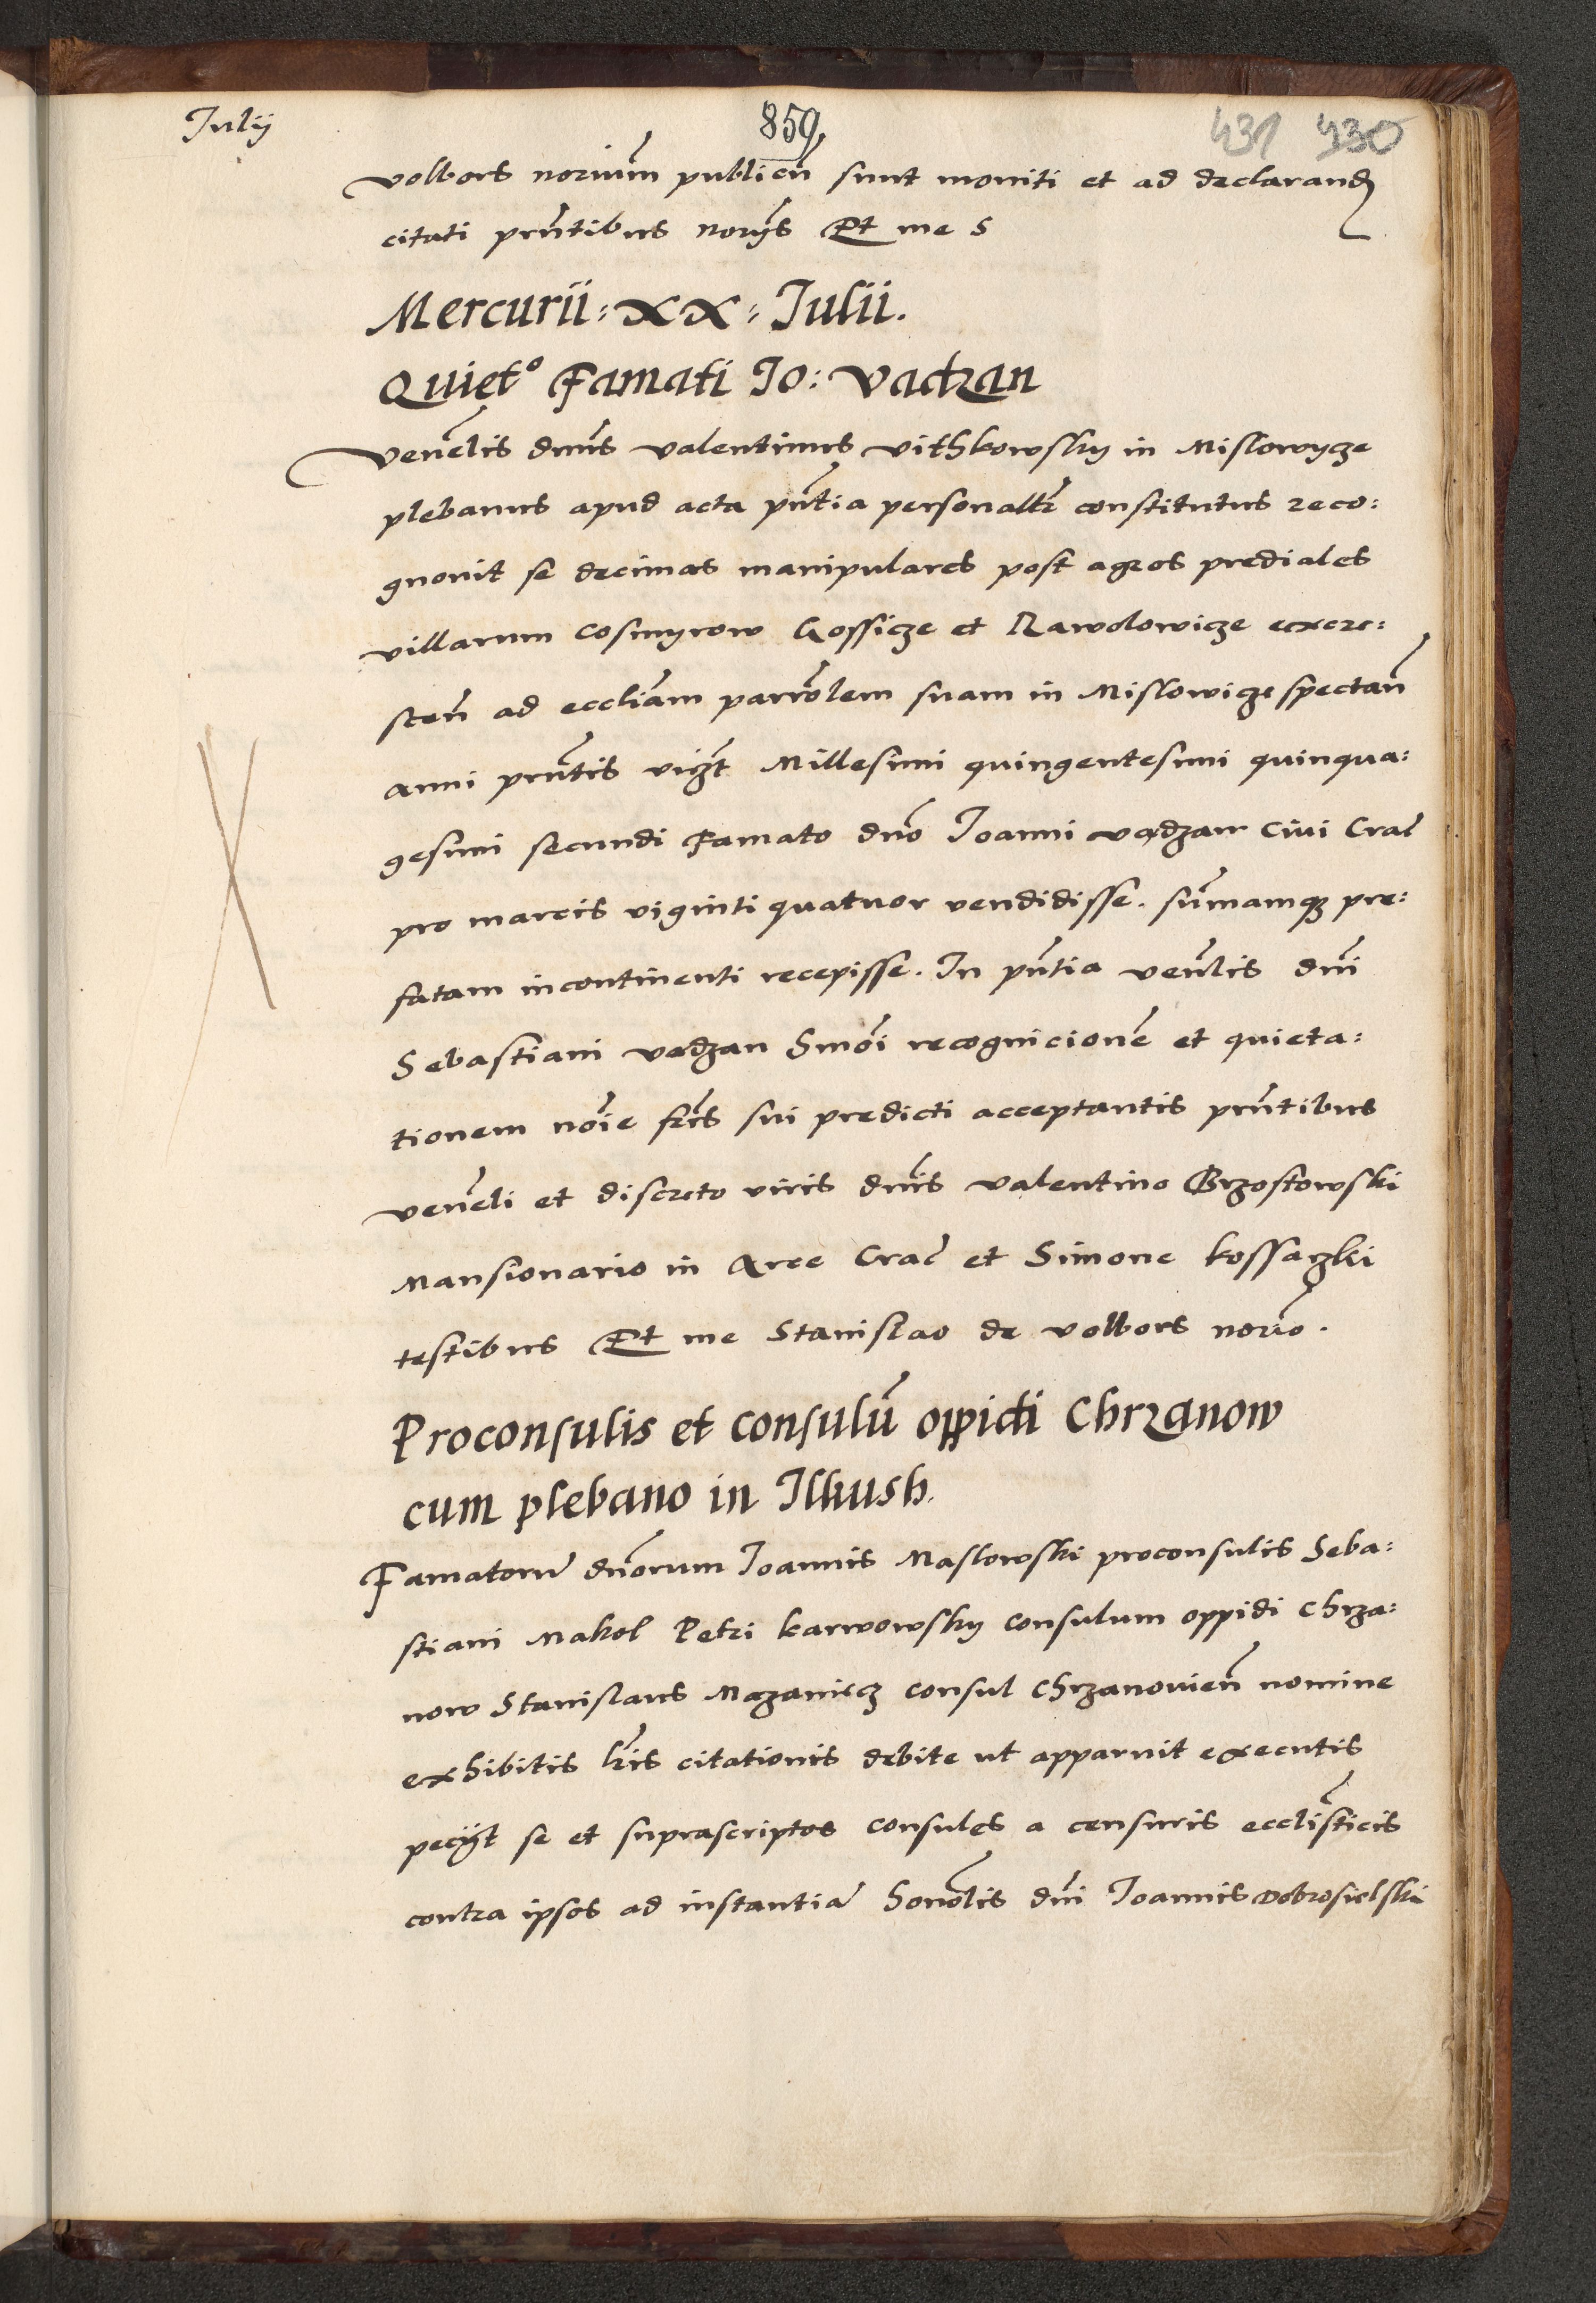 Julij
859
431 430
volbors noriũm publicũ sunt moniti et ad declarand
citati prñtibus norijs Et me S
Mercurii : XX : Julii .
Quiet° Famati Jo: Vadzan
Venẽlis dnũs Valentinus Vithkowsky in Mislowycze
plebanus apud acta pñtia personaltr constitutus reco:
gnouit se decimas manipulares post agros prediales
villarum Cosmyrow Gossicze et Rawolowicze
scen̄ ad eccliãm parrõlem suam in Mislowicze spectan̄
anni prñtis Millesimi quingentesimi quinqua:
gesimi secundi Famato dnõ Joanni vadzan Ciui Crac
pro marcis viginti quatuor vendidisse . sum̃amq3 pre:
fatam incontinenti recepisse . In pñtia venẽlis dñi
Sebastiani vadzan Smõi recognicionẽ et quieta:
tionem nõie frĩs sui predicti acceptantis prñtibus
venẽli et discreto viris dñis Valentino Brzostowski
Mansionario in Arce Crac et Simone Kossaczki
testibus Et me Stanislao de volbors norio .
Proconsulis et consulũ oppidi Chrzanow
cum plebano in Ilkush .
Famatorũ dnõrum Joannis Maslowski proconsulis Seba:
stiani Makol Petri Karwowsky Consulum oppidi Chrza:
now Stanislaus Mazaniecz consul Chrzanouien̄ nomine
exhibitis lrĩs citationis debite ut apparuit executis
pecijt se et suprascriptos consules a censuris ecclĩsticis
contra ipsos ad instantiã honõlis dñi Joannis Dobrosielski